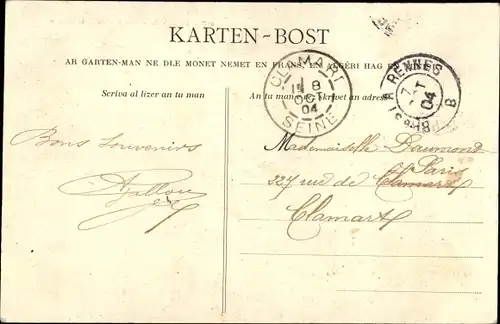 KARTEN-BOST
AR GARTEN-MAN NE DLE MONET NEMET EN FRANS, EN ALGÉRI HAG EN
Scriva al lizer an tu man
An tu man skrivet an adres
CLAMART
18
OCT
04
SEINE
RENNES
7
04
B
Bons Souvenirs
Mademoiselle
227 rue de Paris
Clamart
Clamart